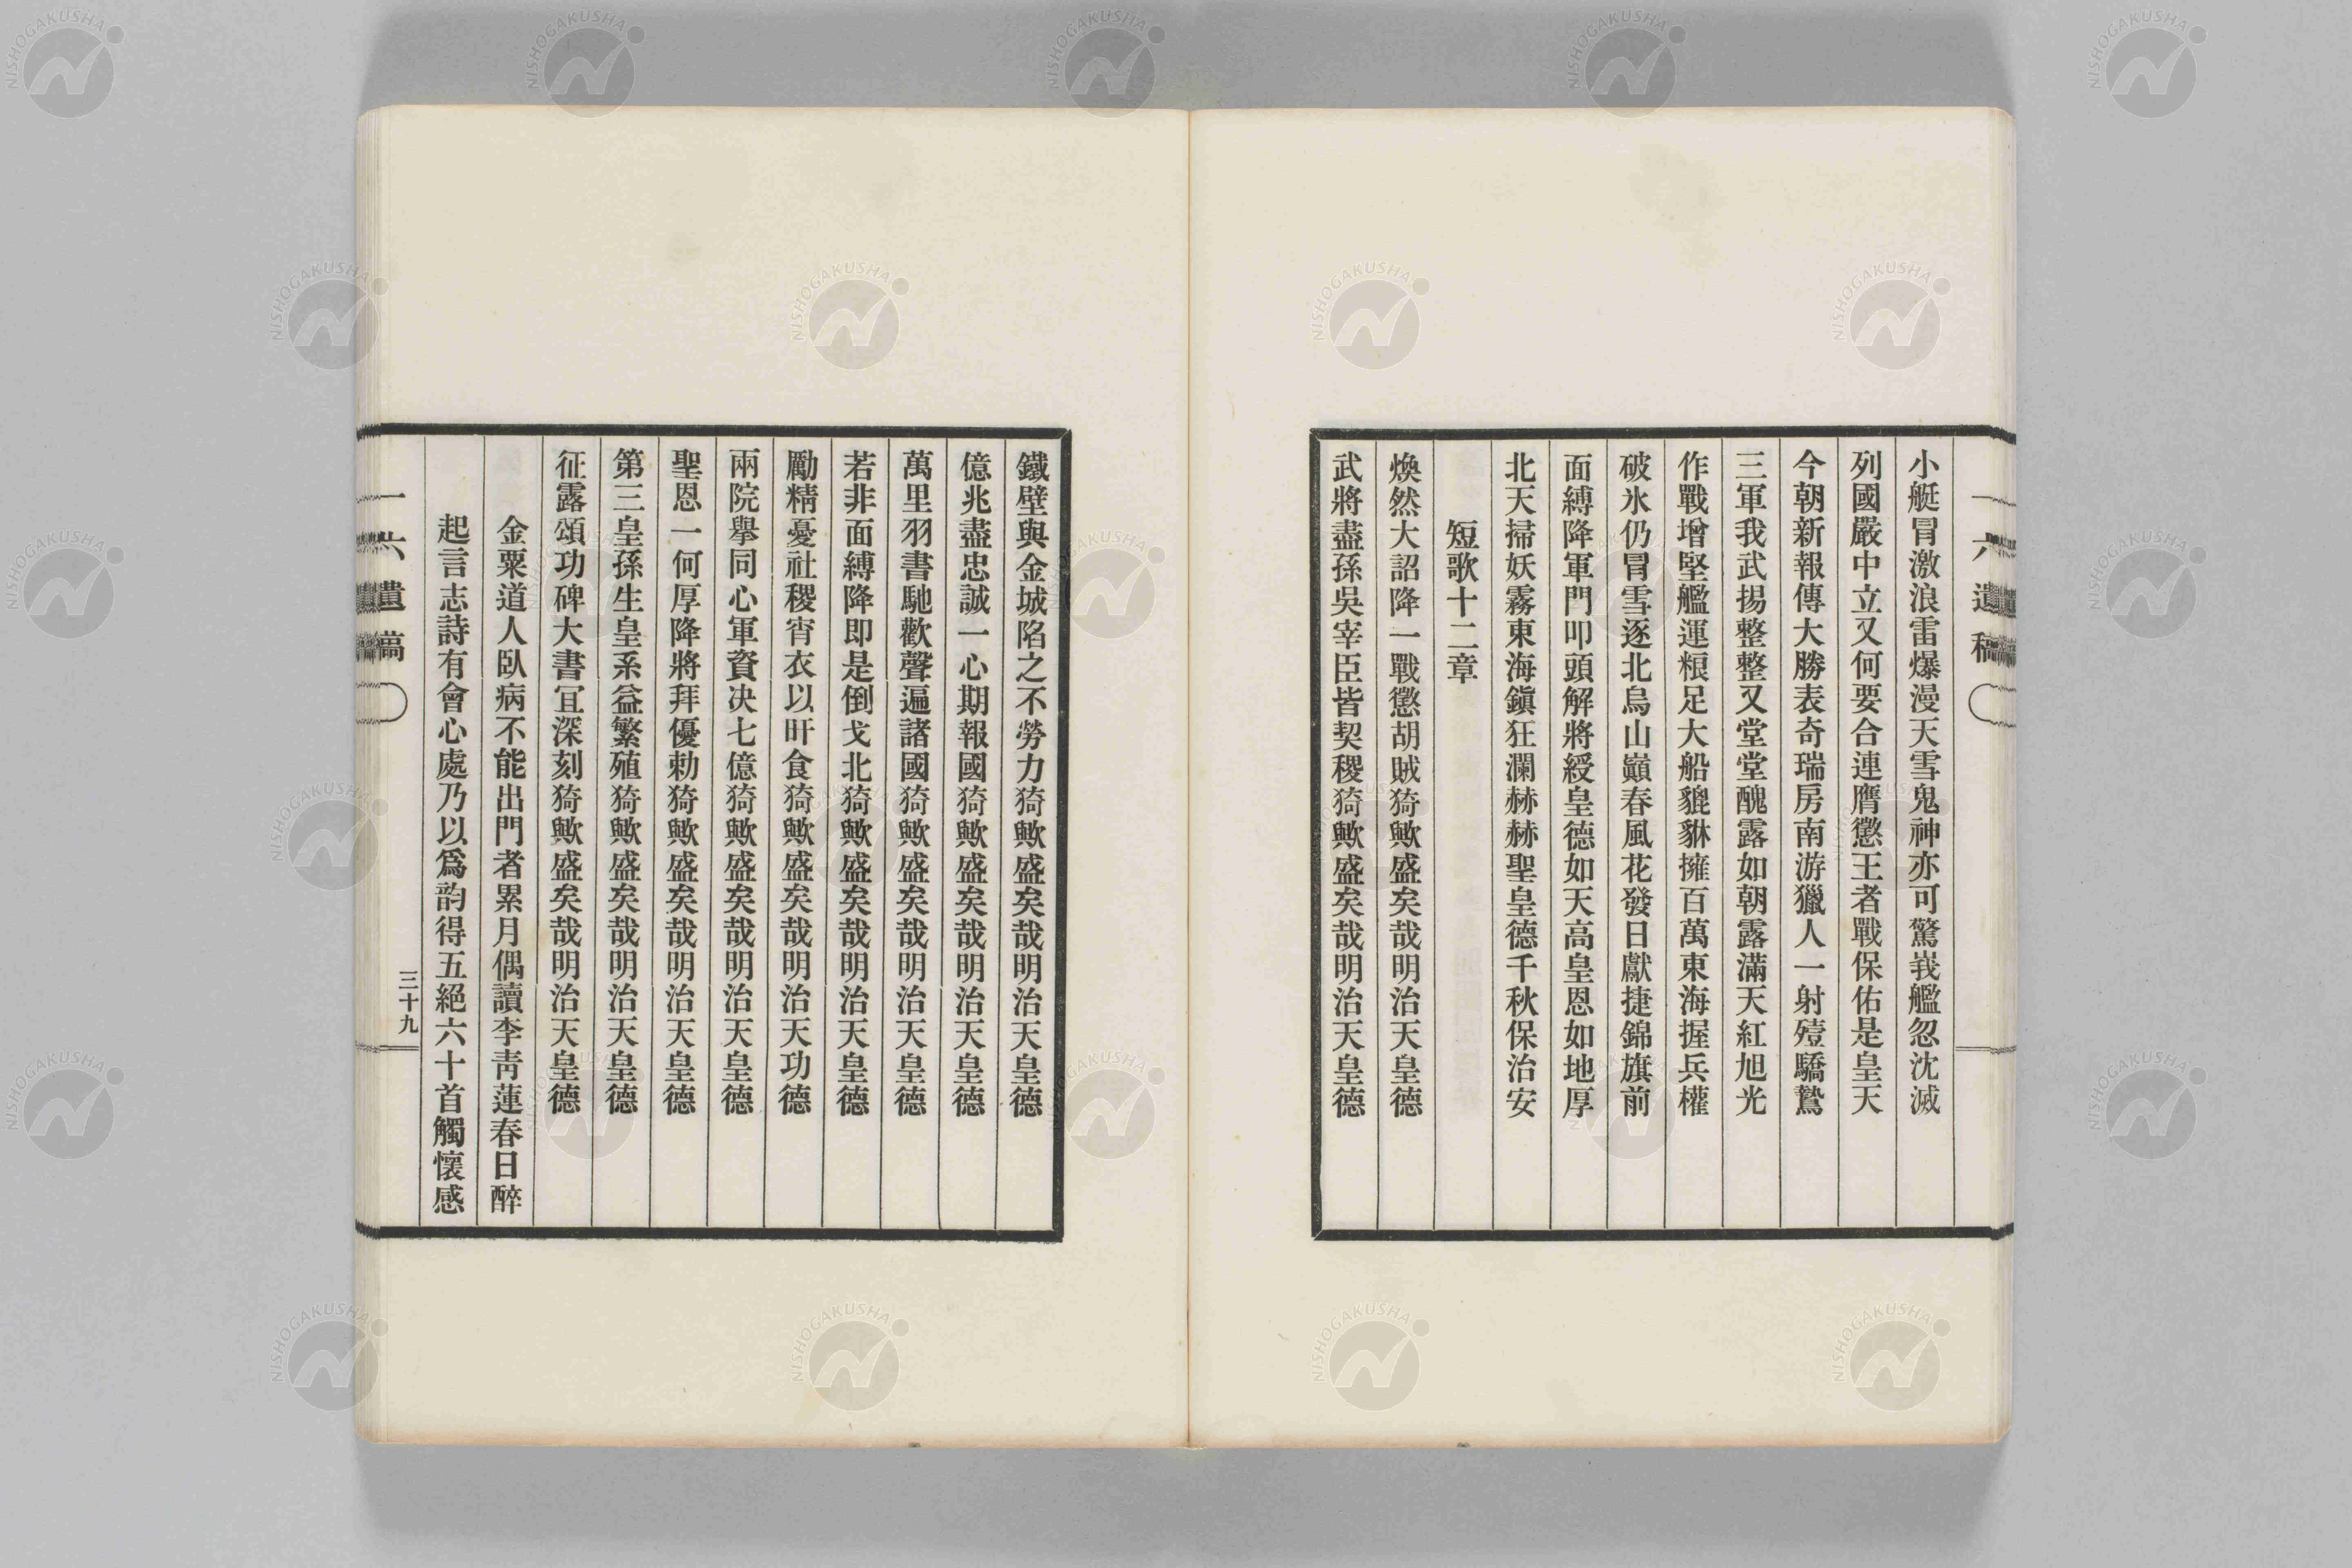 一六遺稿
小艇冒激浪雷爆漫天雪鬼神亦可驚峩艦忽沈滅
列國嚴中立又何要合連膺懲王者戰保佑是皇天
今朝新報傳大勝表奇瑞房南游獵人一射殪驕鷙
三軍我武揚整整又堂堂醜露如朝露滿天紅旭光
作戰增堅艦運粮足大船貔貅擁百萬東海握兵權
破氷仍冒雪逐北烏山巓春風花發日獻捷錦旗前
面縛降軍門叩頭解將綬皇德如天高皇恩如地厚
北天掃妖霧東海鎭狂瀾赫赫聖皇德千秋保治安
短歌十二章
煥然大詔降一戰懲胡賊猗歟盛矣哉明治天皇德
武將盡孫吳宰臣皆契稷猗歟盛矣哉明治天皇德
鐵壁與金城陷之不勞力猗歟盛矣哉明治天皇德
億兆盡忠誠一心期報國猗歟盛矣哉明治天皇德
萬里羽書馳歡聲遍諸國猗歟盛矣哉明治天皇德
若非面縛降即是倒戈北猗歟盛矣哉明治天皇德
勵精憂社稷宵衣以旰食猗歟盛矣哉明治天功德
兩院擧同心軍資决七億猗歟盛矣哉明治天皇德
聖恩一何厚降將拜優勅猗歟盛矣哉明治天皇德
第三皇孫生皇系益繁殖猗歟盛矣哉明治天皇德
征露頌功碑大書冝深刻猗歟盛矣哉明治天皇德
金粟道人臥病不能出門者累月偶讀李靑蓮春日醉
起言志詩有會心處乃以爲韵得五絕六十首觸懷感
一六遺稿
三十九
NISHOGAKUSHA